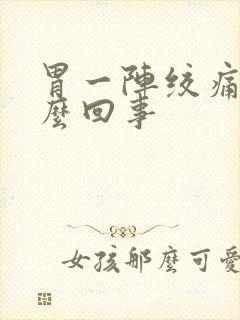 胃一陣绞痛
麼回事
女孩那麼可愛